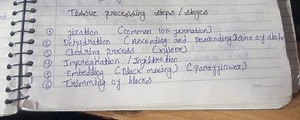 Tissue processing steps / stages
① fixation (common 10% formation)
② Dehydration (Ascending and Descending of
③ Clearing process (xylene)
④ Impregnation / Infiltration
⑤ Embedding (Block making) (
⑥ Trimming of blocks